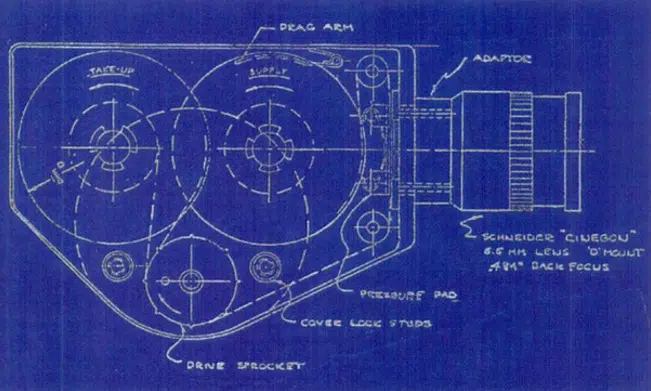 DRAG ARM
ADAPTOR
TAKE-UP
SUPPLY
SCHNEIDER "CINEGON"
LENS 'D' MOUNT
BACK FOCUS
PRESSURE PAD
COVER LOCK STUDS
DRIVE SPROCKET